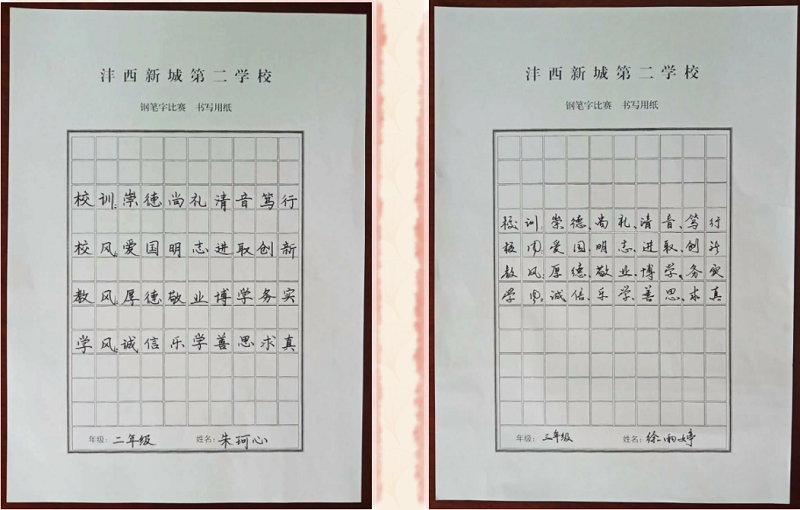 沣西新城第二学校
钢笔字比赛 书写用纸
校训:崇德尚礼清音笃行
校风:爱国明志进取创新
教风:厚德敬业博学务实
学风:诚信乐学善思求真
年级: 二年级 姓名: 朱珂心
沣西新城第二学校
钢笔字比赛 书写用纸
校训:崇德、尚礼、清音、笃行
校风:爱国、明志、进取、创新
教风:厚德、敬业、博学、务实
学风:诚信、乐学、善思、求真
年级: 三年级 姓名: 徐雨婷